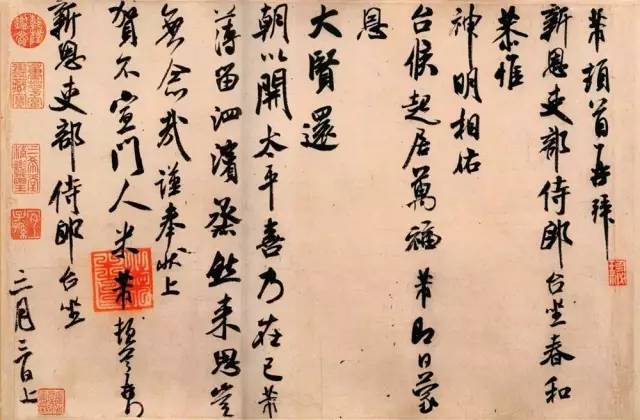 芾頓首再拜
新恩吏部侍郎台坐春和
恭惟
神明相佑
台候起居萬福芾即日蒙
恩
大賢還
朝以開太平喜乃在己芾
薄留泗濱蒸然來思豈
無念哉謹奉狀上
賀不宣門人米芾頓首
新恩吏部侍郎台坐
三月三日上